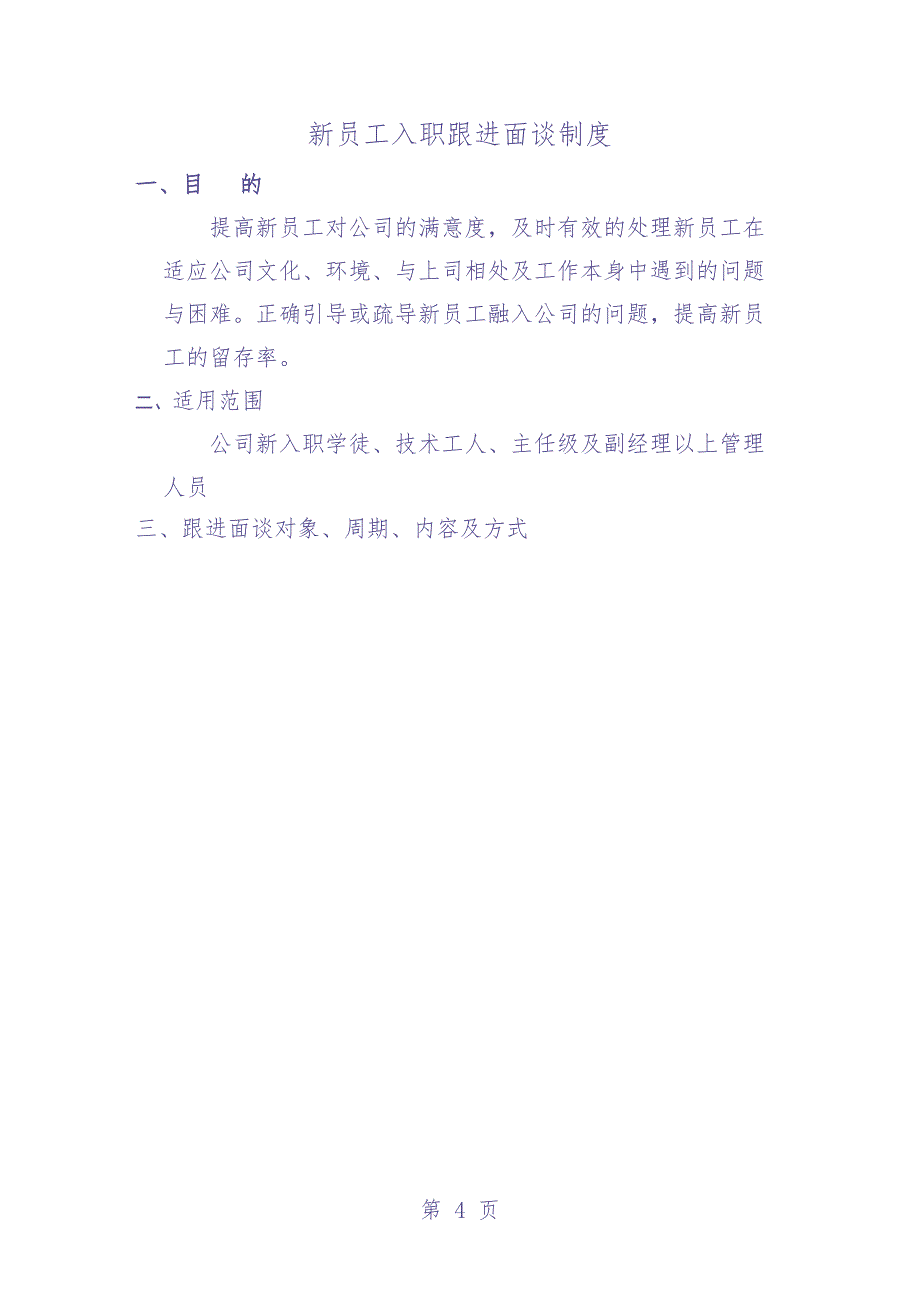 新员工入职跟进面谈制度
一、目 的
提高新员工对公司的满意度，及时有效的处理新员工在
适应公司文化、环境、与上司相处及工作本身中遇到的问题
与困难。正确引导或疏导新员工融入公司的问题，提高新员
工的留存率。
二、适用范围
公司新入职学徒、技术工人、主任级及副经理以上管理
人员
三、跟进面谈对象、周期、内容及方式
第 4 页